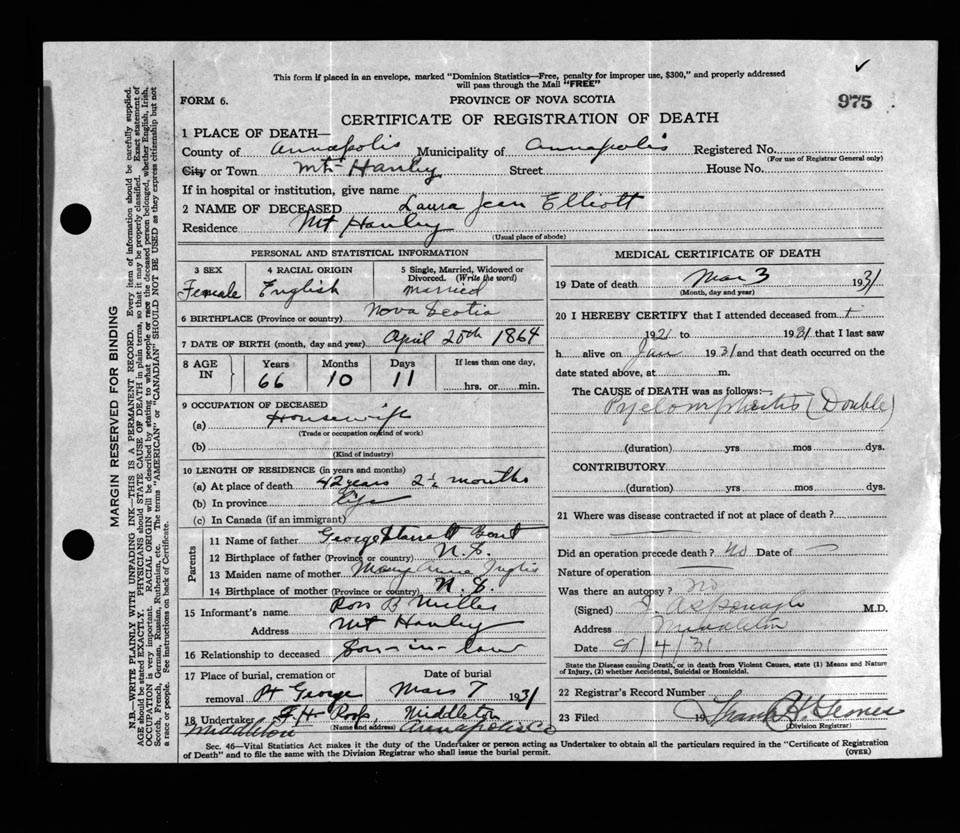 This form if placed in an envelope, marked "Dominion Statistics—Free, penalty for improper use, $300," and properly addressed
will pass through the Mail "FREE"
FORM 6.
PROVINCE OF NOVA SCOTIA
975
CERTIFICATE OF REGISTRATION OF DEATH
1 PLACE OF DEATH—
County of Annapolis Municipality of Annapolis Registered No.
(For use of Registrar General only)
City or Town Mt Hanley Street House No.
If in hospital or institution, give name
2 NAME OF DECEASED Laura Jean Elliott
Residence Mt Hanley
(Usual place of abode)
PERSONAL AND STATISTICAL INFORMATION
3 SEX
Female
4 RACIAL ORIGIN
English
5 Single, Married, Widowed or
Divorced. (Write the word)
Married
6 BIRTHPLACE (Province or country) Nova Scotia
7 DATE OF BIRTH (month, day and year) April 20th 1864
8 AGE
IN
Years
66
Months
10
Days
11
If less than one day,
hrs. or min.
9 OCCUPATION OF DECEASED
(a) Housewife
(Trade or occupation or kind of work)
(b)
(Kind of industry)
10 LENGTH OF RESIDENCE (in years and months)
(a) At place of death 42 years 2½ months
(b) In province Life
(c) In Canada (if an immigrant)
Parents
11 Name of father George
12 Birthplace of father (Province or country) N.S.
13 Maiden name of mother Mary Anna Inglis
14 Birthplace of mother (Province or country) N.S.
15 Informant's name Ross B Miller
Address Mt Hanley
16 Relationship to deceased Son-in-law
17 Place of burial, cremation or
removal Pt George
Date of burial
Mar 7 1931
18 Undertaker F H Roop, Middleton
Middleton (Name and address) Annapolis Co
MEDICAL CERTIFICATE OF DEATH
19 Date of death Mar 3 1931
(Month, day and year)
20 I HEREBY CERTIFY that I attended deceased from
1921 to 1931 that I last saw
h alive on Jan 1931 and that death occurred on the
date stated above, at m.
The CAUSE of DEATH was as follows:—
Pyelonephritis (Double)
(duration) yrs mos dys.
CONTRIBUTORY
(duration) yrs mos dys.
21 Where was disease contracted if not at place of death?
Did an operation precede death? no Date of
Nature of operation
Was there an autopsy? no
(Signed) M.D.
Address Middleton
Date 8/4/31
State the Disease causing Death, or in death from Violent Causes, state (1) Means and Nature
of Injury, (2) whether Accidental, Suicidal or Homicidal.
22 Registrar's Record Number
23 Filed 19 Frank H
(Division Registrar)
Sec. 46—Vital Statistics Act makes it the duty of the Undertaker or person acting as Undertaker to obtain all the particulars required in the "Certificate of Registration
of Death" and to file the same with the Division Registrar who shall issue the burial permit.
(OVER)
MARGIN RESERVED FOR BINDING
N.B.—WRITE PLAINLY WITH UNFADING INK—THIS IS A PERMANENT RECORD. Every item of information should be carefully supplied.
AGE should be stated EXACTLY. PHYSICIANS should STATE CAUSE OF DEATH in plain terms, so that it may be properly classified. Exact statement of
OCCUPATION is very important. RACIAL ORIGIN will be described by stating to what people or race the deceased person belonged, whether English, Irish,
Scotch, French, German, Russian, Ruthenian, etc. The terms "AMERICAN" or "CANADIAN" SHOULD NOT BE USED as they express citizenship but not
a race or people. See instructions on back of Certificate.